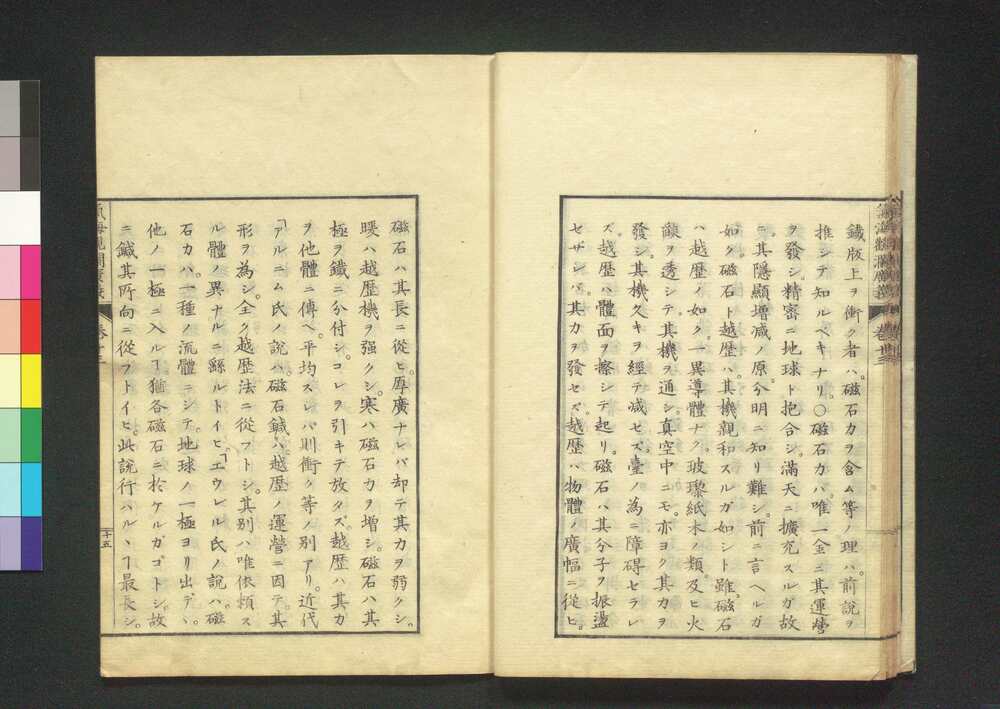 鐵版上ヲ衝ク者ハ。磁石カヲ含ム等ノ理ハ。前說ヲ
推シテ知ルベキナリ。○磁石カハ。唯一金ニ其運營
ヲ發シ。精密ニ地球ト抱合シ。滿天ニ擴充スルガ故
ニ。其隱顯增減ノ原。分明ニ知リ難シ。前ニ言ヘルガ
如ク。磁石ト越歷ハ。其機親和スルガ如シト雖。磁石
ハ越歷ノ如ク。一異導體ナク。玻瓈紙木ノ類。及ヒ火
𦦨ヲ透シテ。其機ヲ通シ。真空中ニモ。亦ヨク其カヲ
發シ。其機久キヲ經テ減セズ。臺ノ為ニ障碍セラレ
ズ。越歷ハ體面ヲ擦シテ起リ。磁石ハ其分子ヲ振盪
セザレバ。其カヲ發セズ。越歷ハ物體ノ廣幅ニ從ヒ。
磁石ハ其長ニ從ヒ。厚廣ナレバ却テ其カヲ弱クシ。
暖ハ越歷機ヲ强クシ。寒ハ磁石カヲ增シ。磁石ハ其
極ヲ鐵ニ分付シ。コレヲ引キテ放タズ。越歷ハ其カ
ヲ他體ニ傳ヘ。平均スレバ則衝ク等ノ別アリ。近代
「アルニム氏ノ說ハ。磁石鍼ハ。越歷ノ運營ニ因テ。其
形ヲ為シ。全ク越歷法ニ從フトシ。其別ハ唯依賴ス
ル體ノ異ナルニ繇ルトイヒ。「エウレル氏ノ說ハ。磁
石カハ。一種ノ流體ニシテ。地球ノ一極ヨリ出デヽ。
他ノ一極ニ入ルヿ。猶各磁石ニ於ケルガゴトシ。故
ニ鍼其所向ニ從フトイヒ。此說行ハルヽヿ最長シ。
十五